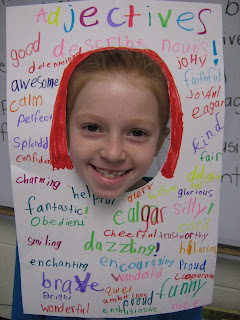 Adjectives
good describe nouns!
determined jolly
awesome faithful
calm Joyful
perfect eagar
splendid kind
confident fair
charming helpful alert
glorious
fantastic! ealgar silly!
Obedient cheerful trustworthy
smiling dazzling! hilarious
enchanting encouraging Proud
brave wonderful cooperative
Bright quiet funny
ambitious proud
wonderful enthusiastic nice